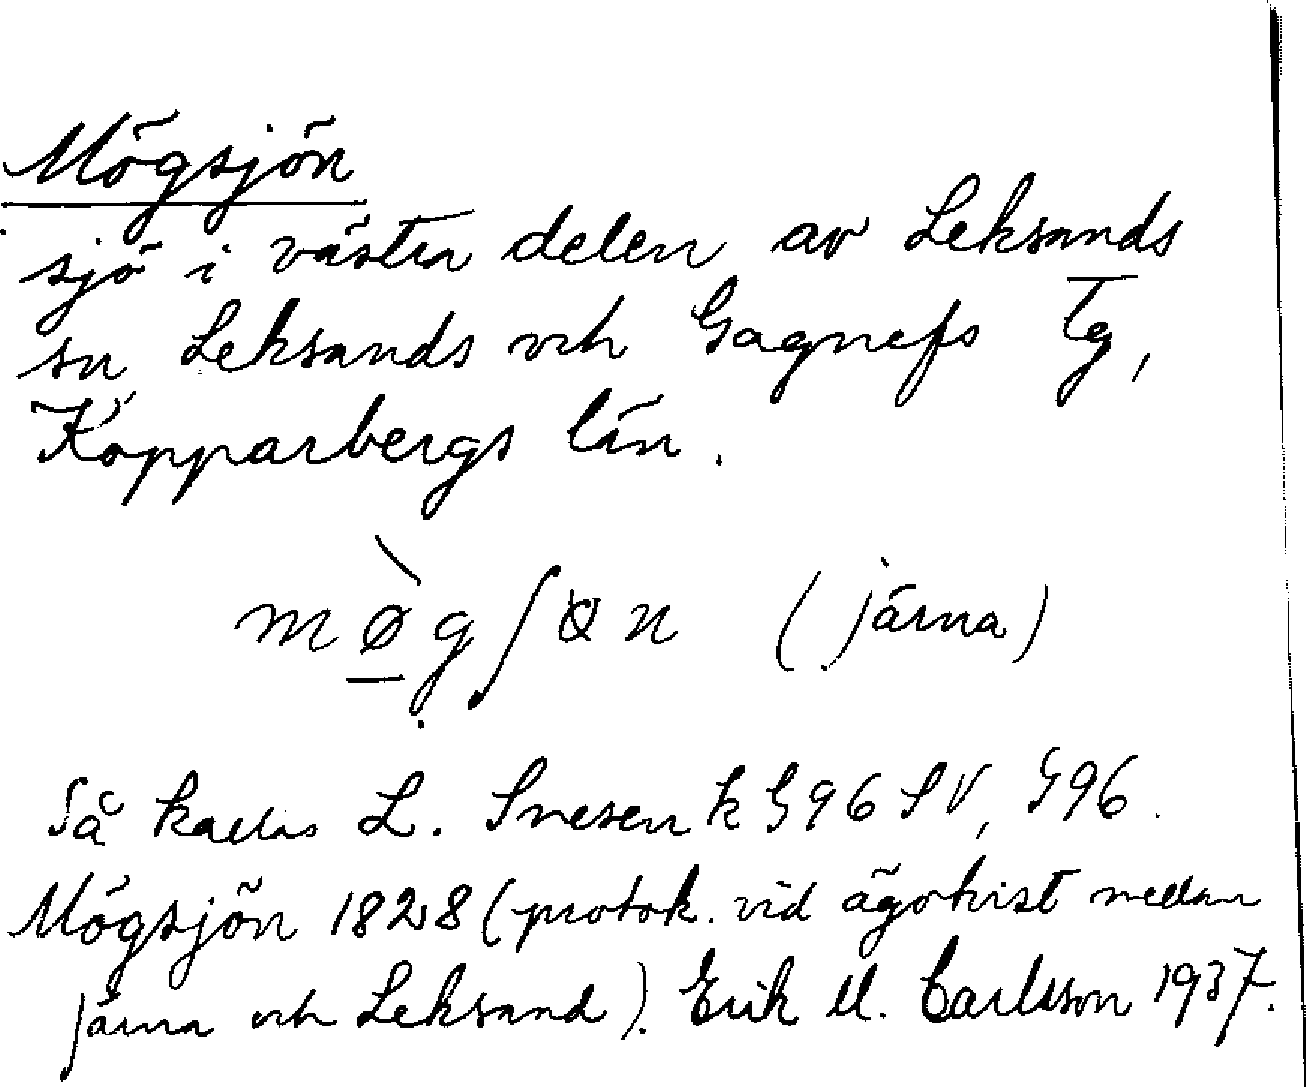 Mögsjön
sjö i västra delen av Leksands
sn, Leksands och Gagnefs Tg,
Kopparbergs län.
mø̀gʃɷn (Järna)
Så kallas L. Snesen k G96 SV, G96.
Mögsjön 1828 (protok. vid ägotvist mellan
Järna och Leksand). Erik U. Carlsson 1937.